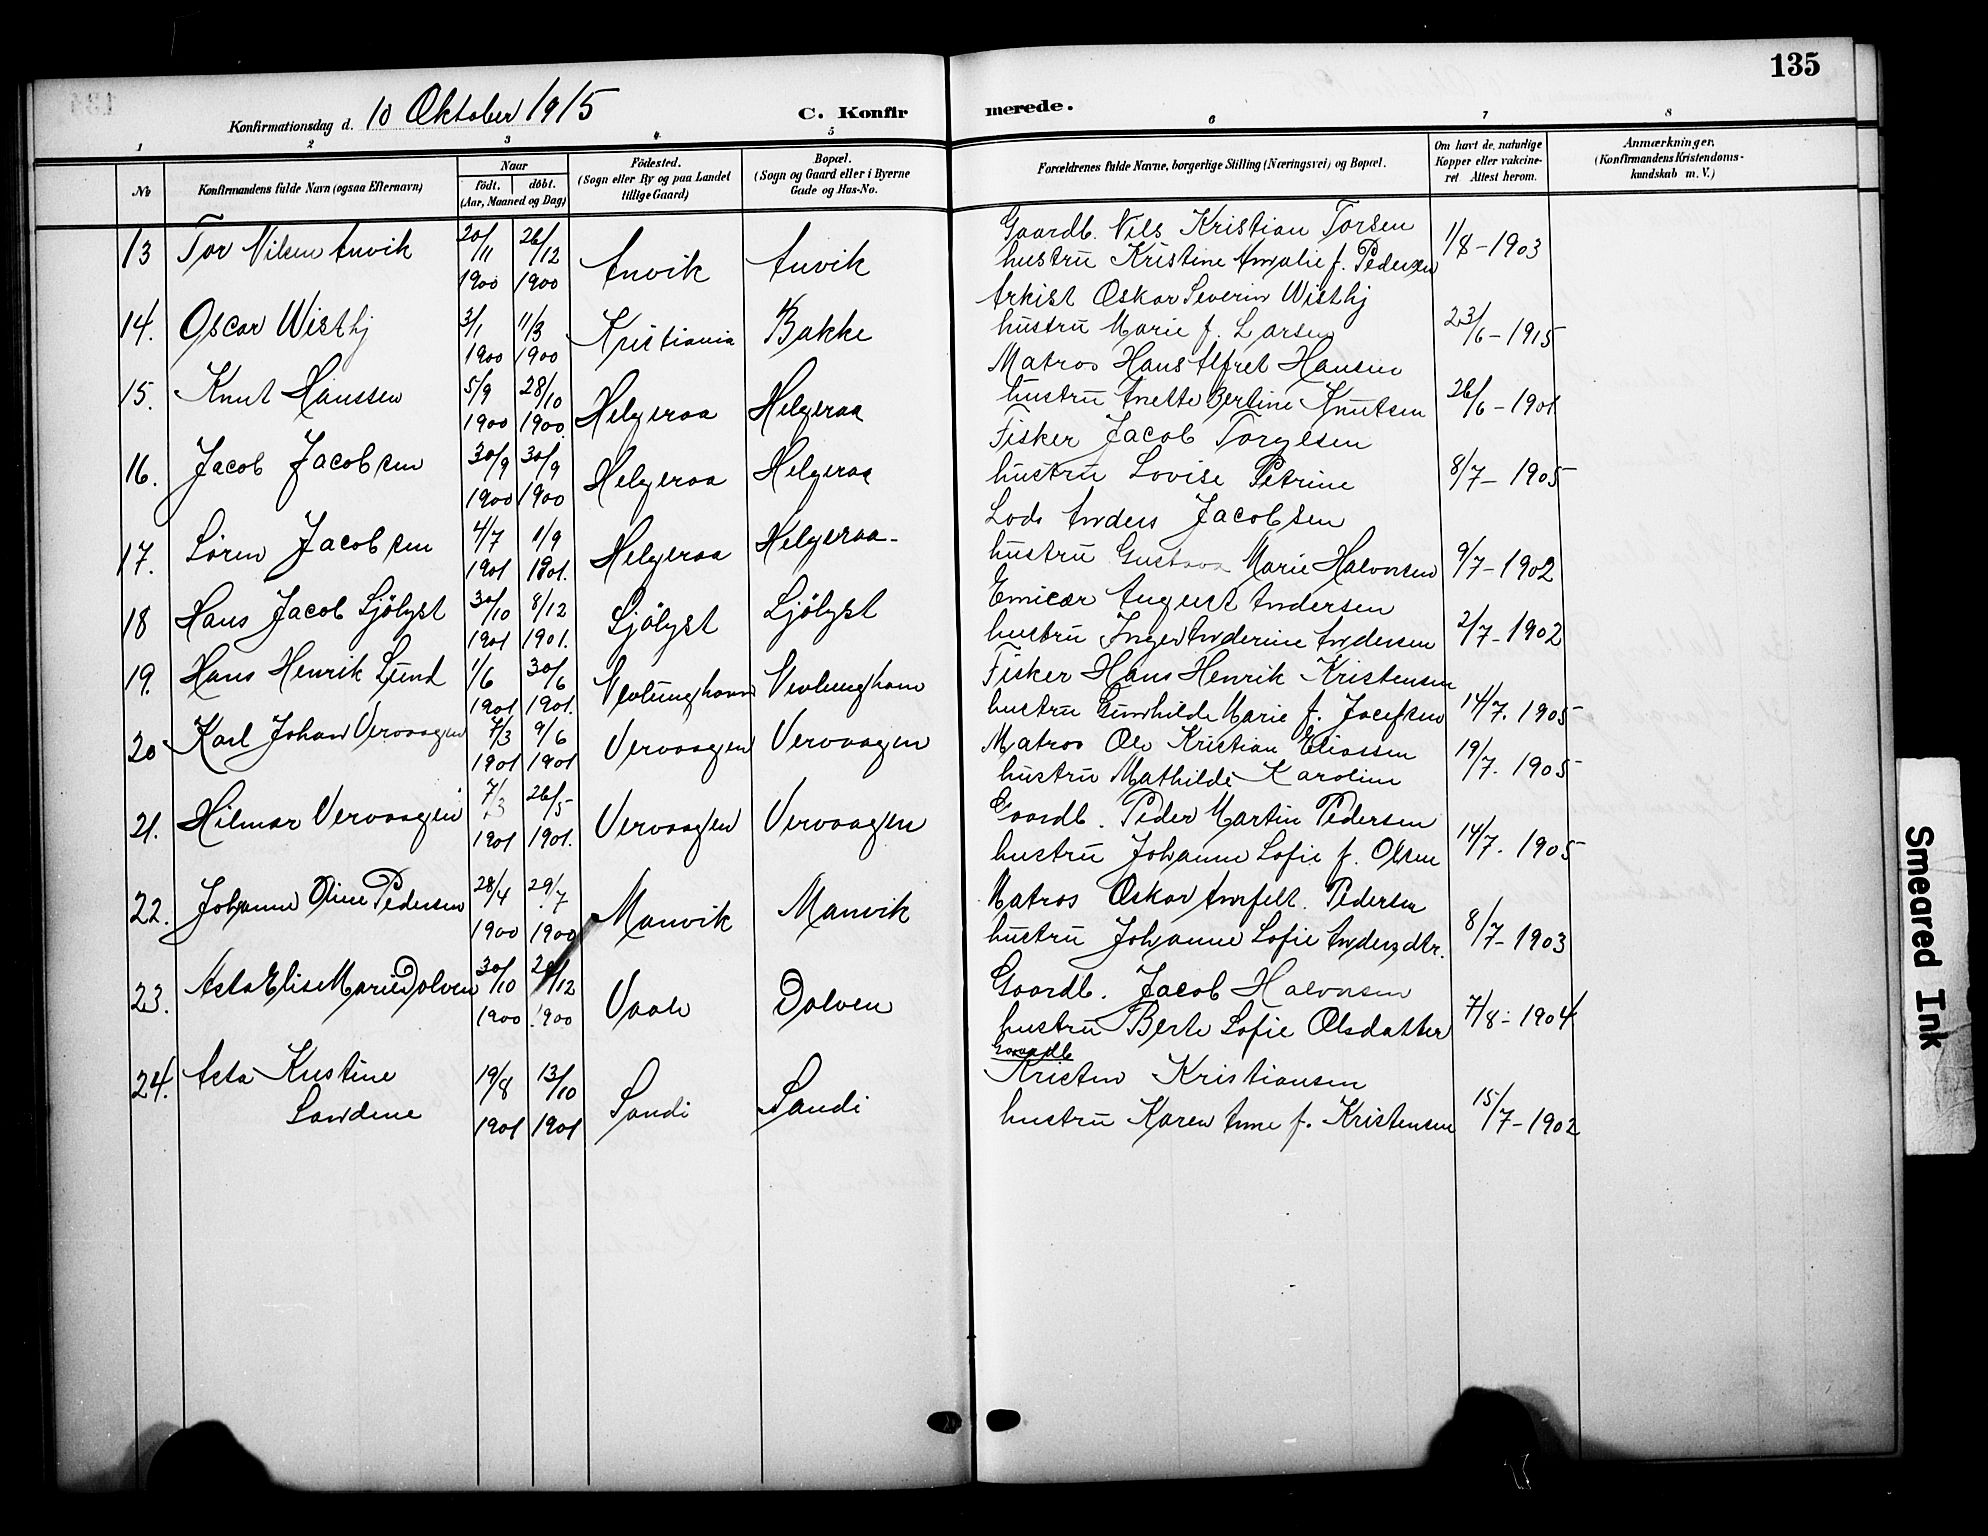 135
Konfirmationsdag d. 10 Oktober 1915 C. Konfirmerede.
1 2 3 4 5 6 7 8
No Konfirmandens fulde Navn (ogsaa Efternavn) Naar födt. döbt. (Aar, Maaned og Dag) Födested. (Sogn eller By og paa Landet tillige Gaard) Bopæl. (Sogn og Gaard eller i Byerne Gade og Hus-No. Forældrenes fulde Navne, borgerlige Stilling (Næringsvei) og Bopæl. Om havt de naturlige Kopper eller vakcineret Attest herom. Anmærkninger. (Konfirmandens Kristendomskundskab m. V.)
13 Tor Nilsen Anvik 20/11 1900 26/12 1900 Anvik Anvik Gaardb. Nils Kristian Torsen
hustru Kristine Amalie f. Pedersen 1/8-1903
14. Oscar Wisthj 3/1 1900 11/3 1900 Kristiania Bakke Oskar Severin Wisthj
hustru Marie f. Larsen 23/6-1915
15. Knut Hanssen 5/9 1900 28/10 1900. Helgeraa Helgeraa Matros Hans Alfret Hansen
hustru Anette Bertine Knutsen 26/6-1901
16. Jacob Jacobsen 30/9 1900 30/9 1900 Helgeraa Helgeraa Fisker Jacob Torgesen
hustru Lovise Petrine 8/7-1905
17. Sören Jacobsen 4/7 1901 1/9 1901. Helgeraa Helgeraa- Lods Anders Jacobsen
hustru Gustava Marie Halvorsen 9/7-1902
18 Hans Jacob Sjölyst 30/10 1901 8/12 1901. Sjölyst Sjölyst August Andersen
hustru Inger Anderine Andersen 2/7-1902
19. Hans Henrik Lund 1/6 1901 30/6 1901. Nevlunghavn Nevlunghavn Fisker Hans Henrik Kristensen
hustru Gunhilde Marie f. Josefsen 14/7.1905
20 Karl Johan Vervaagen 7/3 1901 9/6 1901 Vervaagen Vervaagen Matros Ole Kristian Eliassen
hustru Mathilde Karoline 19/7.1905
21. Hilmar Vervaagen 7/3 1901 26/5 1901. Vervaagen Vervaagen Gaardb. Peder Martin Pedersen
hustru Johanne Sofie f. Olsen 14/7.1905
22. Johanne Oline Pedersen 28/4 1900 29/7 1900 Manvik Manvik Matros Oskar Amfelt. Pedersen
hustru Johanne Sofie Andersdtr. 8/7-1903
23. Asta Elise Marie Dolven 30/10 1900 /12 1900 Vaale Dolven Gaardb. Jacob Halvorsen
hustru Berte Sofie Olsdatter 7/8-1904
24. Asta Kristine Sandene 19/8 1901 13/10 1901 Sandi Sandi Gaardb
Kristen Kristiansen
hustru Karen Anne f. Kristensen 15/7-1902
Smeared Ink